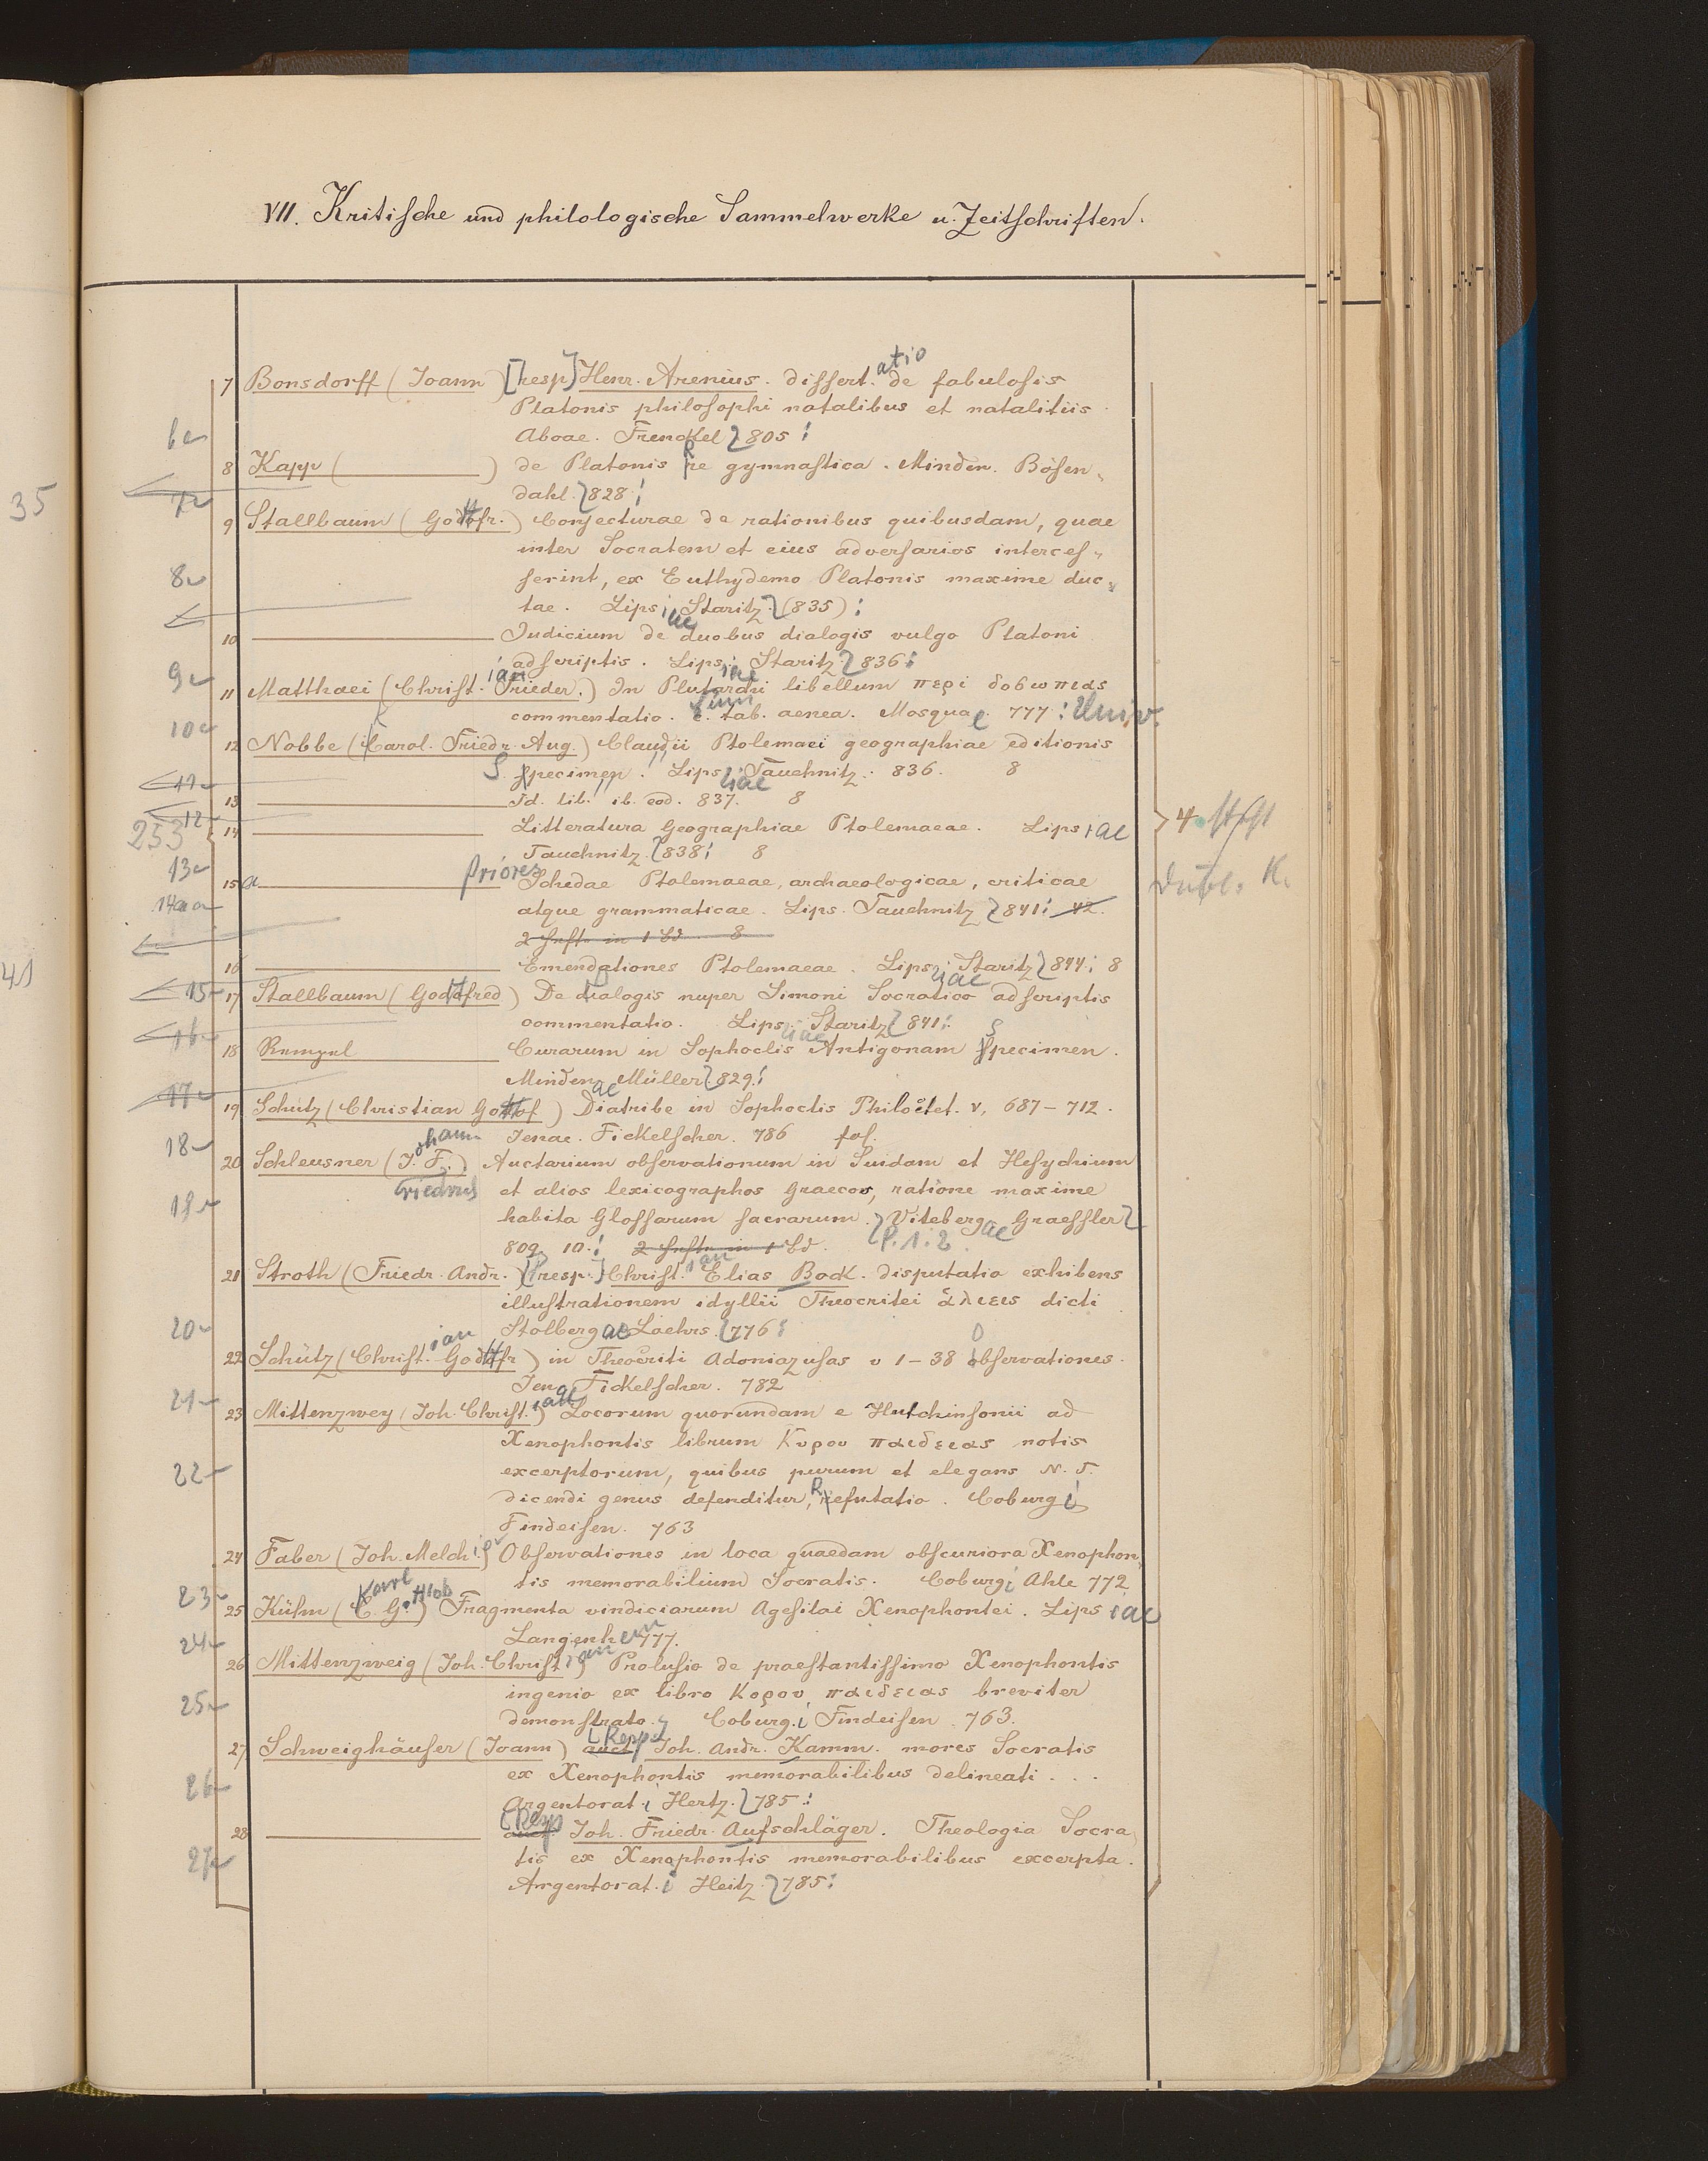 VII. Kritische und philologische Sammelwerke u. Zeitschriften.
7 Bonsdorff (Joann) [resp] Henr. Arenius. dissert.atio de fabulosis
Platonis philosophi natalibus et natalitiis.
Aboae. Frenckel 805
6
8 Kapp ( ) de Platonis re gymnastica. Minden. Bösen-
dahl. 828
35
7
9 Stallbaum (Gottfr.) Conjecturae de rationibus quibusdam, quae
inter Socratem et eius adversarios interces-
8
serint, ex Euthydemo Platonis maxime duc-
tae. Lipsiae Staritz (835)
10 Judicium de duobus dialogis vulgo Platoni
adscriptis. Lipsiae Staritz 836
9
11 Matthaei (Christian Frieder.) In Plutarchi libellum περι δοσωπιας
commentatio. c. tab. aenea. Mosquae 777: Univ.
10
12 Nobbe (Carol. Friedr. Aug.) Claudii Ptolemaei geographiae editionis
Specimen. Lipsiae Tauchnitz. 836. 8
11
13 Id. lib. ib. eod. 837. 8
12
14 Litteratura Geographiae Ptolemaeae. Lipsiae
4
253
Tauchnitz. 838 8
13
15 a priores Schedae Ptolemaeae, archaeologicae, criticae
Dubl. K.
14
atque grammaticae. Lips. Tauchnitz 841 42.
2 Hefte in 1 Bd 8
16 Emendationes Ptolemaeae. Lipsiae Staritz 844 8
41
15
17 Stallbaum (Gottfred) De Dialogis nuper Simoni Socratico adscriptis
commentatio. Lipsiae Staritz 841
16
18 Rempel Curarum in Sophoclis Antigonam Specimen.
Mindenae Müller 829
17
19 Schütz (Christian Gottfof) Diatribe in Sophoclis Philoctet. v, 687–712.
Jenae. Fickelscher. 786 fol.
18
20 Schleusner (Johann Friedrich) Auctarium observationum in Suidam et Hesychium
et alios lexicographos Graecos, ratione maxime
19
habita Glossarum sacrarum. Vitebergae Graessler
809. 10. 2 Hefte in 1 Bd. P. 1. 2.
21 Stroth (Friedr. Andr.) [resp.] Christian Elias Bock. disputatio exhibens
illustrationem idyllii Theocritei ἁλιεις dicti
20
Stolbergae Laehrs. 776
22 Schütz (Christian Gottfr) in Theocriti Adoniazusas v 1–38 Observationes.
Jenae Fickelscher. 782
21
23 Mittenzwey (Joh. Christian) Locorum quorundam e Hutchinsonii ad
Xenophontis librum Κυρου παιδειας notis
22
excerptorum, quibus purum et elegans N. T.
dicendi genus defenditur, Refutatio. Coburgi
Findeisen. 763
24 Faber (Joh. Melchior) Observationes in loca quaedam obscuriora Xenophon-
tis memorabilium Socratis. Coburgi Ahle 772
23
25 Kühn (Karl Gottlob) Fragmenta vindiciarum Agesilai Xenophontei. Lipsiae
Langenhem 777.
24
26 Mittenzweig (Joh. Christian) Prolusio de praestantissimo Xenophontis
ingenio ex libro Κυρου παιδειας breviter
25
demonstrato. Coburgi Findeisen. 763.
27 Schweighäuser (Joann) auct [Resp Joh. Andr. Kamm. mores Socratis
ex Xenophontis memorabilibus delineati...
26
Argentorati Hertz. 785
28 auct [Resp Joh. Friedr. Aufschläger. Theologia Socra-
27
tis ex Xenophontis memorabilibus excerpta.
Argentorati Heitz. 785